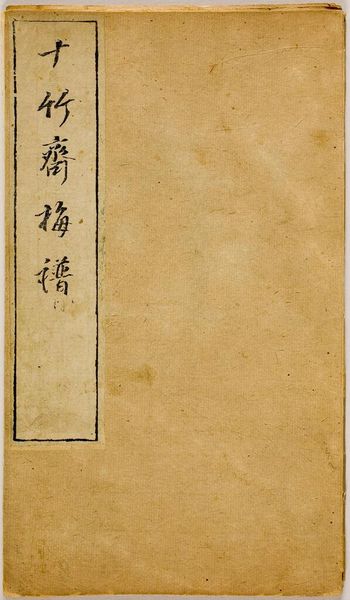 十竹齋梅譜